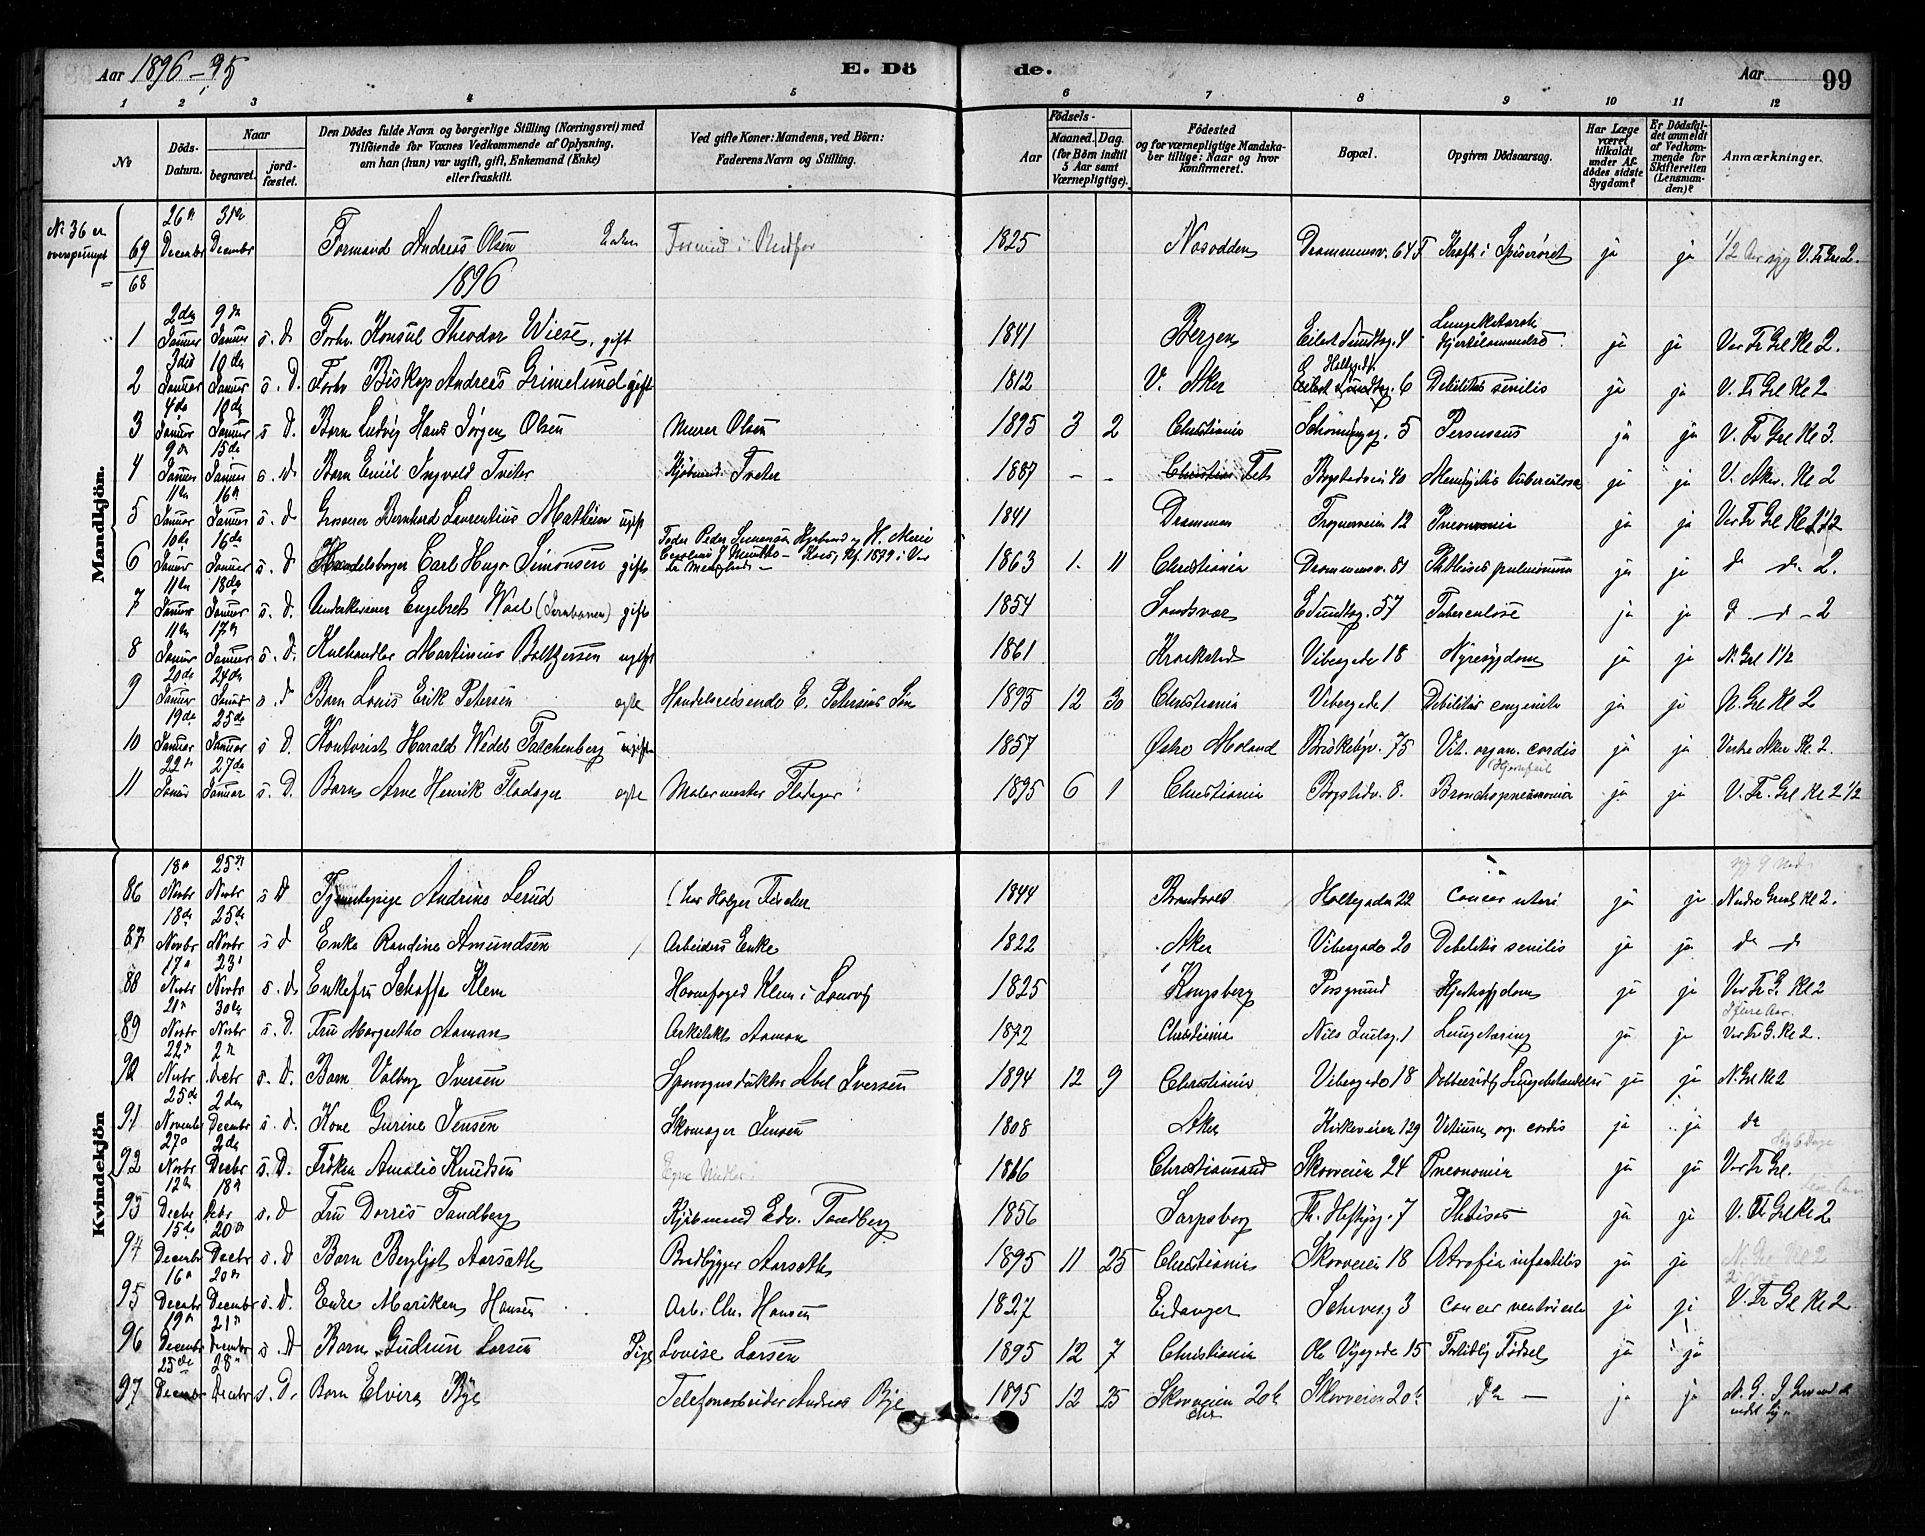 Aar 1896-95 E. Dö
de. Aar 99
1 2 3 4 5 6 7 8 9 10 11 12
No
Döds-Datum.
Naar
begravet.
jord-fæstet.
Den Dödes fulde Navn og borgerlige Stilling (Næringsvei) med
Tilföiende for Voxnes Vedkommende af Oplysning,
om han (hun) var ugift, gift, Enkemand (Enke)
eller fraskilt.
Ved gifte Koner: Mandens, ved Börn:
Faderens Navn og Stilling.
Födsels-
Aar Maaned. Dag.
(for Börn indtil
5 Aar samt
Værnepligtige).
Födested
og for værnepligtige Mandska-
ber tillige: Naar og hvor
konfirmeret.
Bopæl.
Opgiven Dödsaarsag.
Har Læge
været
tilkaldt
under Af-
dödes sidste
Sygdom?
Er Dödsfal-
det anmeldt
af Vedkom-
mende for
Skifteretten
(Lensman-
den)?
Anmærkninger.
Mandkjön.
No 36 er oversprunget
69 26de Decembr 31te Decembr Formand Andreas Olsen 1825 Nesodden Drammensv. 64 F Kræft i Spiserøret ja ja 1/2 Aar syg V. Fr Grl 2.
68
1896
1 2den Januar 9de Januar s. D Forhv. Konsul Theodor Wiese, gift 1841 Bergen Eilert Sundtsg. 4 Lungekatarrh ja ja Vor Fr Grl Kl 2.
2 3die Januar 10de Januar s. D. Forhv Biskop Andreas Grimelund gift 1812 V. Aker Eilert Sundtsg. 6 Debilitas senilis ja ja V. Fr Grl Kl 2
3 4de Januar 10de Januar s D. Barn Ludvig Hans Jørgen Olsen Murer Olsen 1895 3 2 Christiania Schøningsg. 5 Pertussus ja ja V. Fr Grl Kl 3.
4 9de Januar 15de Januar s. D Barn Emil Ingvald Tveter Kjøbmand Tveter 1887 - - Christiania Fet Bogstadveien 40 Meningitis tuberculosa ja ja V. Aker Kl 2
5 11te Januar 16de Januar s. d Grosserer Bernhard Laurentius Mathiesen ugift 1841 Drammen Frognerveien 12 Pneumonia ja ja Vor Fr Grl Kl 1 1/2
6 10de Januar 16de Januar s. D Handelsborger Carl Hugo Simonsen gift 1863 1. 11 Christiania Drammensv. 81 Phthisis pulmonum ja ja do do 2.
7 11te Januar 18de Januar s. D. Underkasserer Engebret Waal (Jernbanen) gift 1854 Sandsvær E Sundtsg. 37 Tuberculose ja ja d - d - 2
8 11te Januar 17de Januar s. D. Kulhandler Martinius Baltzersen ugift 1861 Kraakstad Vibesgade 18 Nyresygdom ja ja N. Grl 1 1/2
9 20de Januar 24de Januar s. d Barn Louis Erik Petersen ægte Handelsreisende E. Petersens Søn 1895 12 30 Christiania Vibesgade 1 Debilitas congenita ja ja N. Grl Kl 2
10 19de Januar 25de Januar s D. Kontorist Harald Wedel Falchenberg ugift 1857 Østre Moland Briskebyv. 75 Vit. organ. cordis (Hjertefeil) ja ja Vestre Aker Kl 2.
11 22de Januar 27de Januar s. D. Barn Arne Henrik Fladager ægte Malermester Fladager 1895 6 1 Christiania Bogstdv. 8. Bronchopneumonia ja ja V. Fr. Grl Kl 2 1/2
Kvindekjön
86 18de Novbr 25de Novbr s D Tjenestepige Andrine Lerud (hos Holger Fischer 1844 Brandvold Holtegaden 22 Cancer uteri ja ja Nordre Gravl Kl 2.
87 18de Novbr 25de Novbr s d Enke Randine Amundsen Arbeiders Enke 1822 Aker Vibesgade 20 Debilitas senilis ja ja do - do
88 17de Novbr 23de Novbr s. d. Enkefru Klem Havnefoged Klem i Laurvig 1825 Kongsberg Porsgrund Hjertesygdom ja ja Vor Fr G. Kl 2
89 21de Novbr 30te Novbr s. D. Fru Margrethe Aaman Arkitekt Aaman 1872 Christiania Nils Juelsg. 1 Lungetæring ja ja Vor Fr G. Kl 2.
90 22de Novbr 2de Decbr s. D. Barn Valborg Iversen Sporvognskusk Abel Iversen 1894 12 9 Christiania Vibesgade 18 Dobbeltsidig Lungebetændelse ja ja N. Grl Kl 2
91 25de November 2den December s. d. Kone Gurine Jensen Skomager Jensen 1808 Aker Kirkeveien 129 Vitium org. cordis ja ja do
92 27de Novbr 2de Decbr s. D. Frøken Amalie Knudsen Egne Midler 1866 Christiansand Skovveien 24 Pneumonia ja ja Vor Fr Grl.
93 12te Decbr 18de Decbr s. d Fru Dorris Tandberg Kjøbmand Edv. Tandberg 1856 Sarpsborg Th. Heftyesg. 7 Phtisis ja ja V. Fr Grl Kl 2
94 15de Decembr 20de Decbr s. D Barn Bergljot Aarsæth Brobygger Aarsæth 1895 11 25 Christiania Skovveien 18 Atrofia infantilis ja ja N. Grv Kl 2
95 16de Decbr 20de Decembr s. D. Enke Mariken Hansen Arb. Chr. Hansen 1827 Eidanger Schivesg 3 Cancer ventriculi ja ja V. Fr Grl Kl 2
96 19de December 21de December s. D Barn Gudrun Larsen Pige Lovise Larsen 1895 12 7 Christiania Ole Vigsgade 15 Fortidlig Fødsel ja ja
97 25de December 28de Decbr s. D. Barn Elvira Bye Telefonarbeider Andreas Bye 1895 12 25 Skovveien 20b Chr Skovveien 20b Do - ja ja N. G.